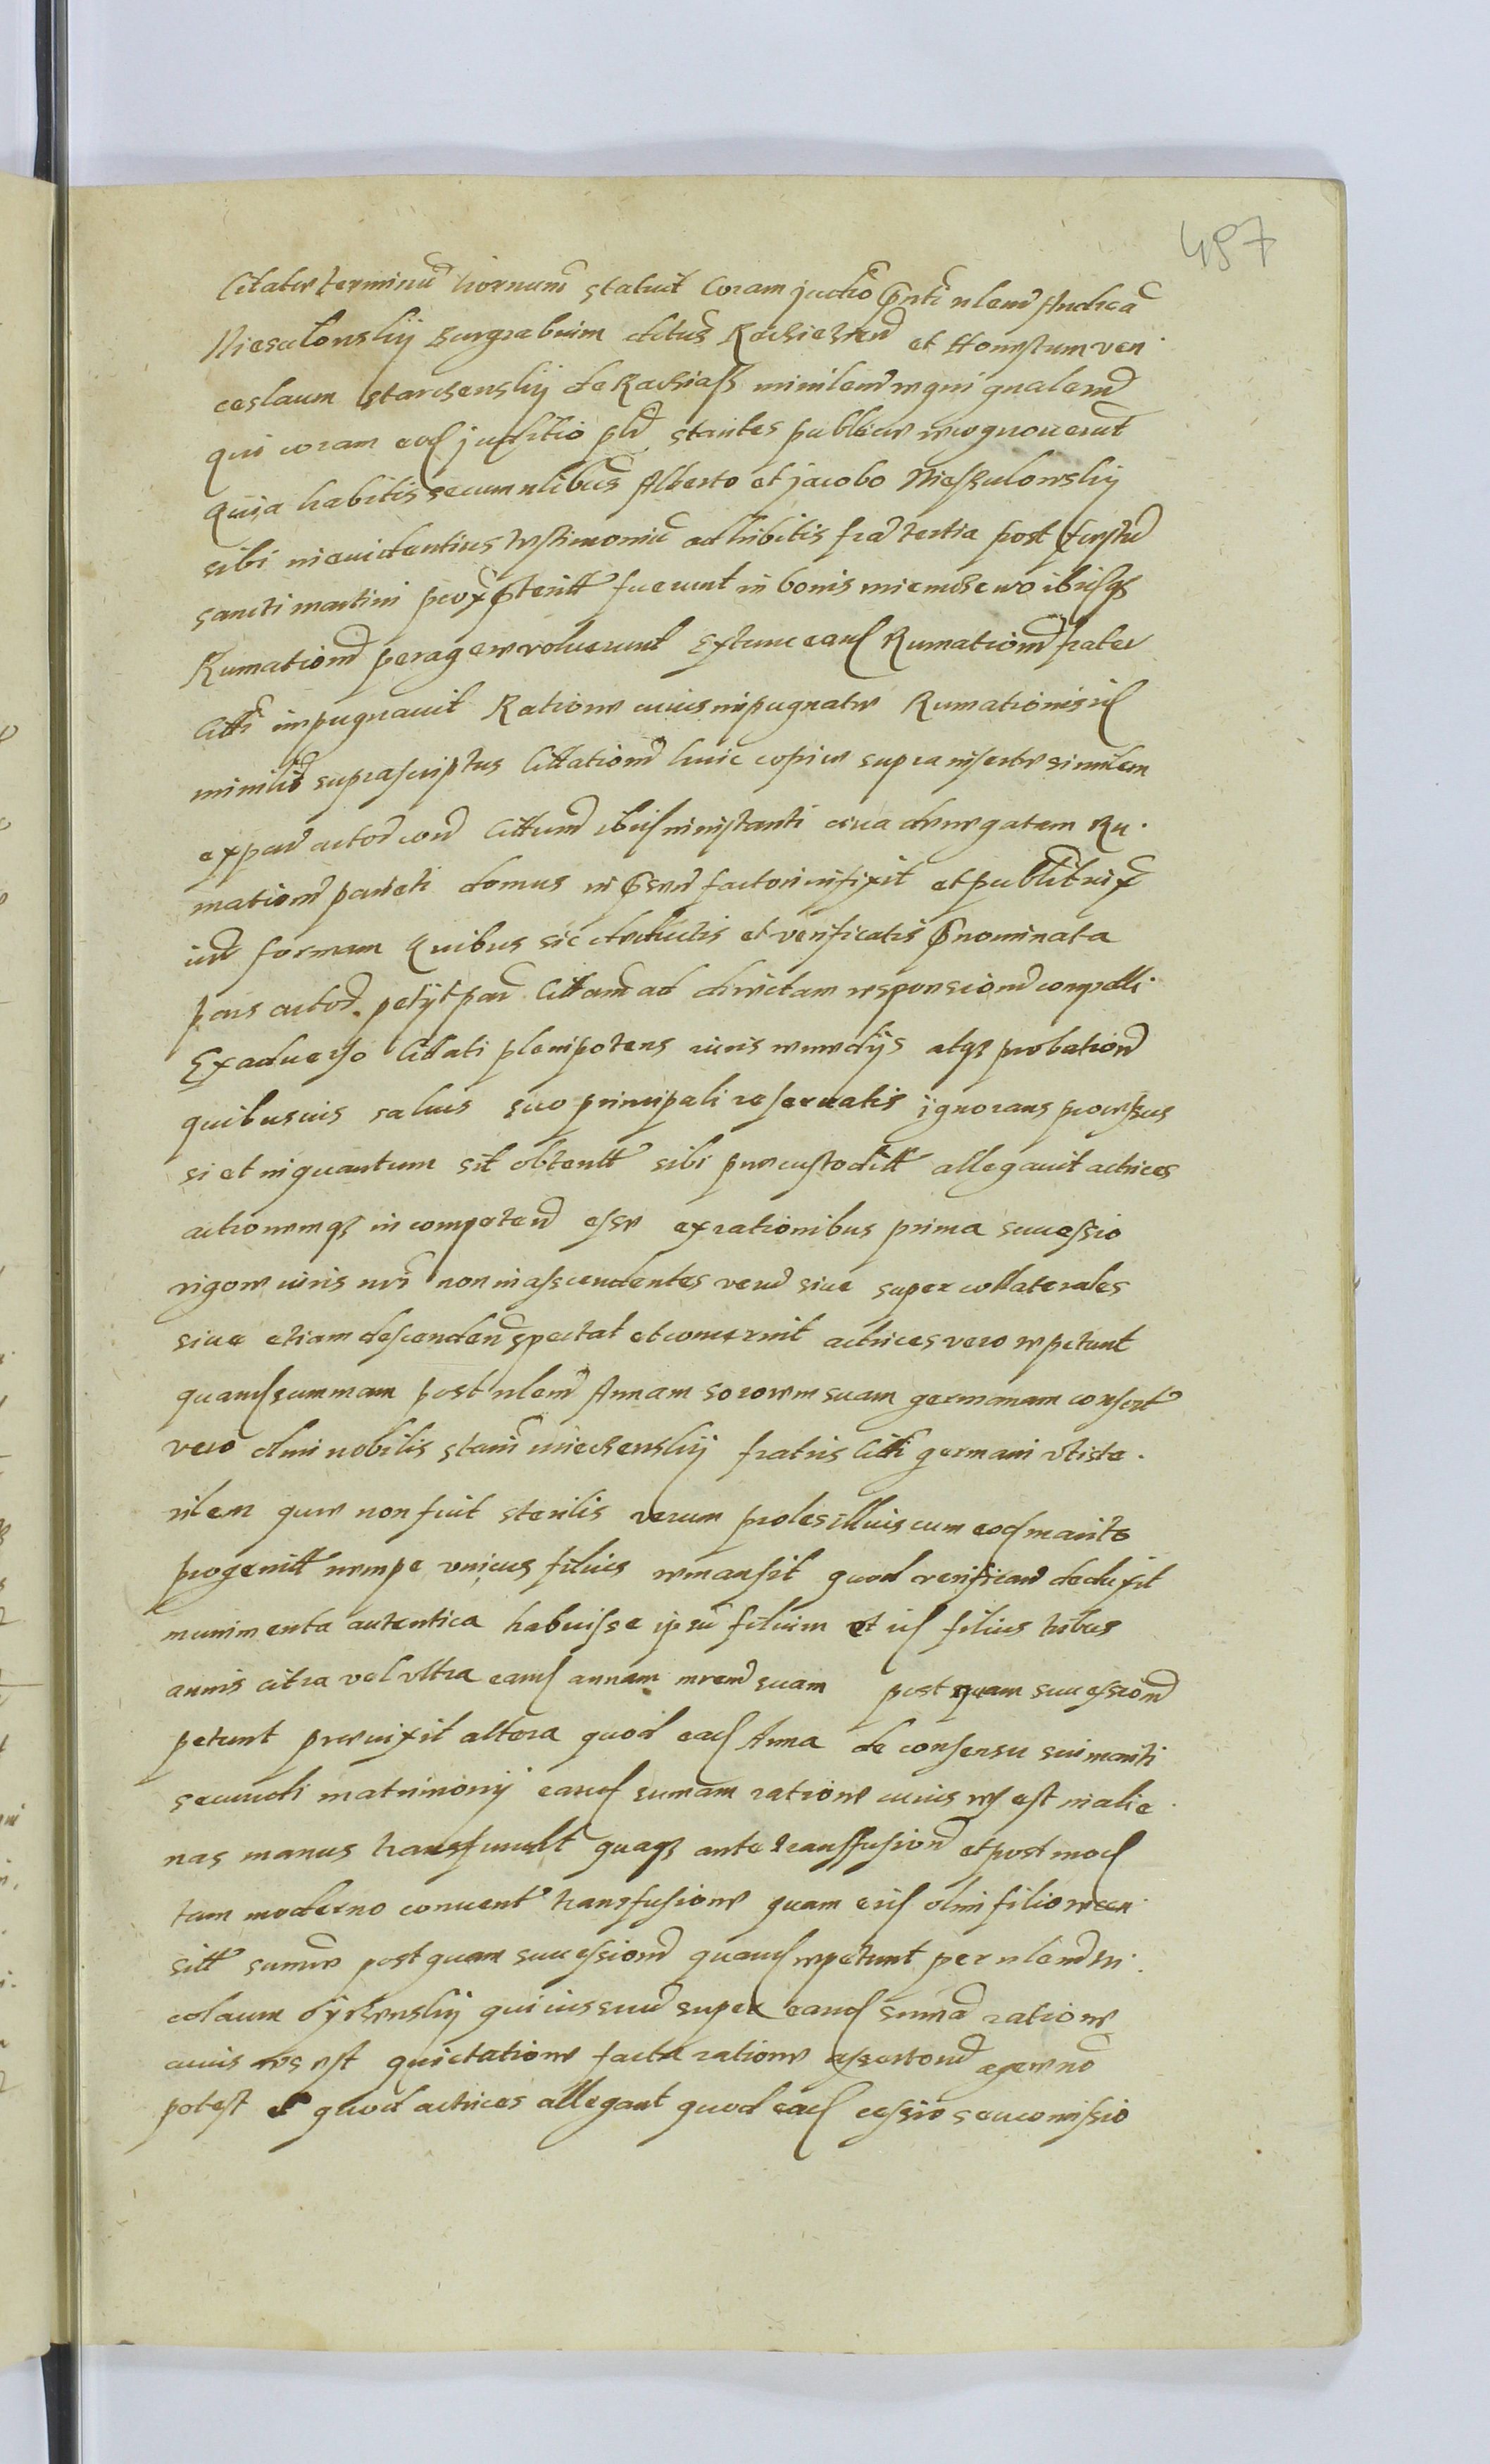 487
Citatus terminum hornum statuit Coram judio nlem Andream
Niesulowskij Burgrabium
et Honestum ven
ceslaum Starchenskij de Rachiass minilem regni gnalem
qui coram eod juditio pld stantes publice recognoverut
Quia habitis secum nlibus Alberto et jacobo Niesulowskij
sibi in evidentius testimoniu adhibitis fra tertia post festu
sancti martini prox fuerunt in bonis ibiq3
Rumationem peragere voluerunt Extunc eand Rumationem frater
Citti impugnavit Ratione cuius impugnate Rumationis id
minilis suprascriptus Cittationem huic copie supra inserte similem
ex par actor Cittum ibid in instanti circa denegatam Ru
mationem parieti domus in factori infixit et publit
iud formam Quibus sic deductis et verificatis nominata
pars actor. petijt par Cittam ad directam responsionem compelli
Ex adverso Citati plenipotens iuris remedijs atq3 probation
quibusvis salvis suo principali reservatis ignorans processus
si et inquantum sit obtentt sibi precustoditt allegavit actrices
actionemq3 incompeten esse ex rationibus prima successio
rigore iuris nri non in ascendentes veru sive super collaterales
sive etiam descenden spectat et concernit actrices vero repetunt
quand summam post nlem Annam sororem suam germanam consort
vero olim nobilis stani miechenskij fratris Citti germani uti ste
rilem que non fuit sterilis verum proles illius cum eod marito
progenitt nempe unicus filius remansit quod verifican deduxit
munimenta autentica habuisse ipsu filium et id filius tribus
annis citra vel ultra eand annam mrem suam post quam succession
petunt previxit altera quod ead Anna de consensu sui mariti
secundi matrimonij eand sumam ratione cuius res est in alie
nas manus transfundit quaq3 ante transfusion et post mod
tam moderno convent transfusione quam eid olim filio recen
sitt summe post quam succession quand repetunt per nlem Ni
colaum qui ius suum super eand summa ratione
cuius res est quictatione facta ratione
potest quod actrices allegant quod ead cessio seu comissio